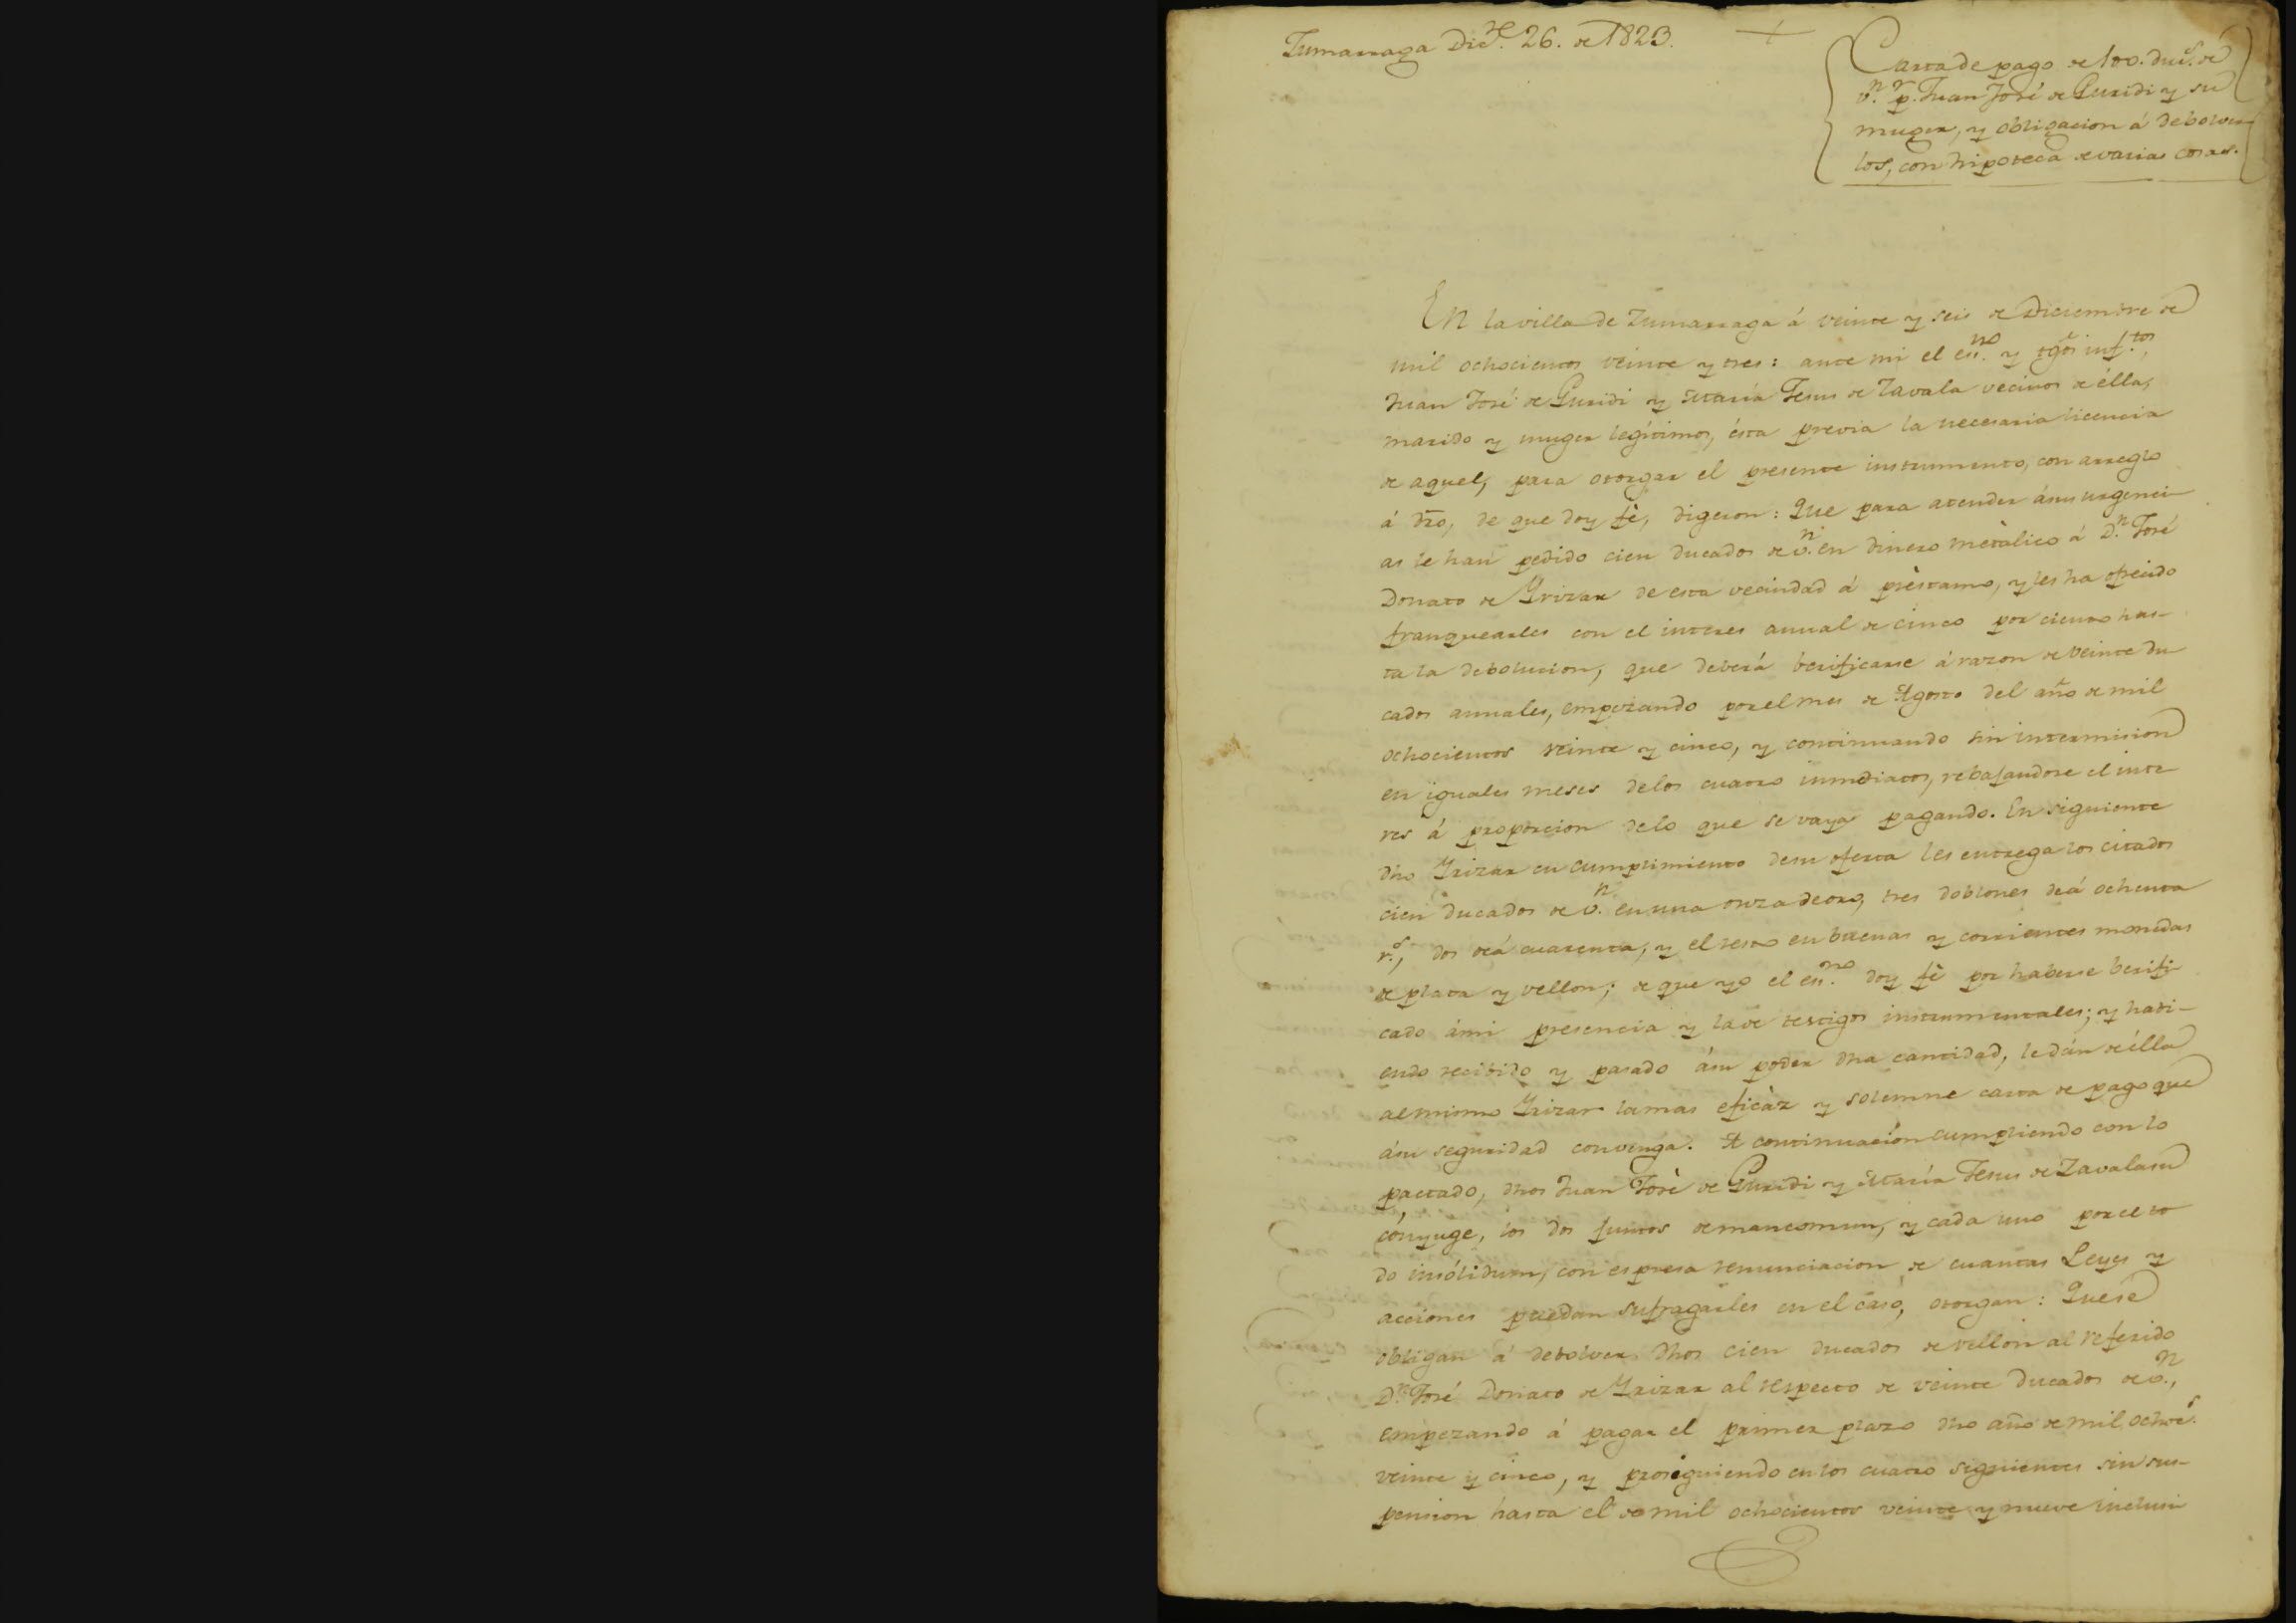 Zumarraga Dicᵉ. 26. de 1823.
Carta de pago de 100. ducˢ. de
v.ⁿ pʳ. Juan José de Guridi y su
muger, y obligacion á debolver
los, con hipoteca de varias cosas.
En la villa de Zumarraga á veinte y seis de Diciembre de
mil ochocientos veinte y tres: ante mi el esⁿᵒ. y tgoˢ infᵗᵒˢ,
Juan José de Guridi y María Jesus de Zavala vecinos de élla,
marido y muger legítimos, ésta previa la necesaria licencia
de aquel, para otorgar el presente instrumento, con arreglo
á dro, de que doy fè, digeron: Que para atender á sus urgenci-
as le han pedido cien ducados de v.ⁿ en dinero metàlico á D.ⁿ José
Donato de Yrizar de esta vecindad á prèstamo, y les ha ofrecido
franquearles con el interes annual de cinco por ciento has-
ta la debolucion, que deberá berificarse á razon de veinte du
cados annales, empezando por el mes de Agosto del año de mil
ochocientos veinte y cinco, y continuando sin intermision
en iguales meses de los cuatro inmediatos, rebajandose el inte
res á proporcion de lo que se vaya pagando. En siguiente
dho Yrizar en cumplimiento de su oferta les entrega los citados
cien ducados de v.ⁿ en una onza de oro, tres doblones de á ochenta
r.ˢ, dos de á cuarenta, y el resto en buenas y corrientes monedas
de plata y vellon; de que yo el esⁿᵒ. doy fè por haberse berifi
cado á mi presencia y la de testigos instrumentales; y habi-
endo recibido y pasado á su poder dha cantidad, le dán de élla
al mismo Yrizar la mas eficàz y solemne carta de pago que
á su seguridad convenga. A continuación cumpliendo con lo
pactado, dhos Juan Josè de Guridi y María Jesus de Zavala su
cónyuge, los dos juntos de mancomun, y cada uno por el to
do insólidum, con espresa renunciacion de cuantas Leyes y
acciones puedan sufragarles en el caso, otorgan: Que se
obligan á debolver dhos cien ducados de vellon al referido
D.ⁿ José Donato de Yrizar al respecto de veinte ducados de v.ⁿ,
empezando á pagar el primer plazo dho año de mil ochocˢ.
veinte y cinco, y prosiguiendo en los cuatro siguientes sin sus-
pension hasta el de mil ochocientos veinte y nueve inclusi